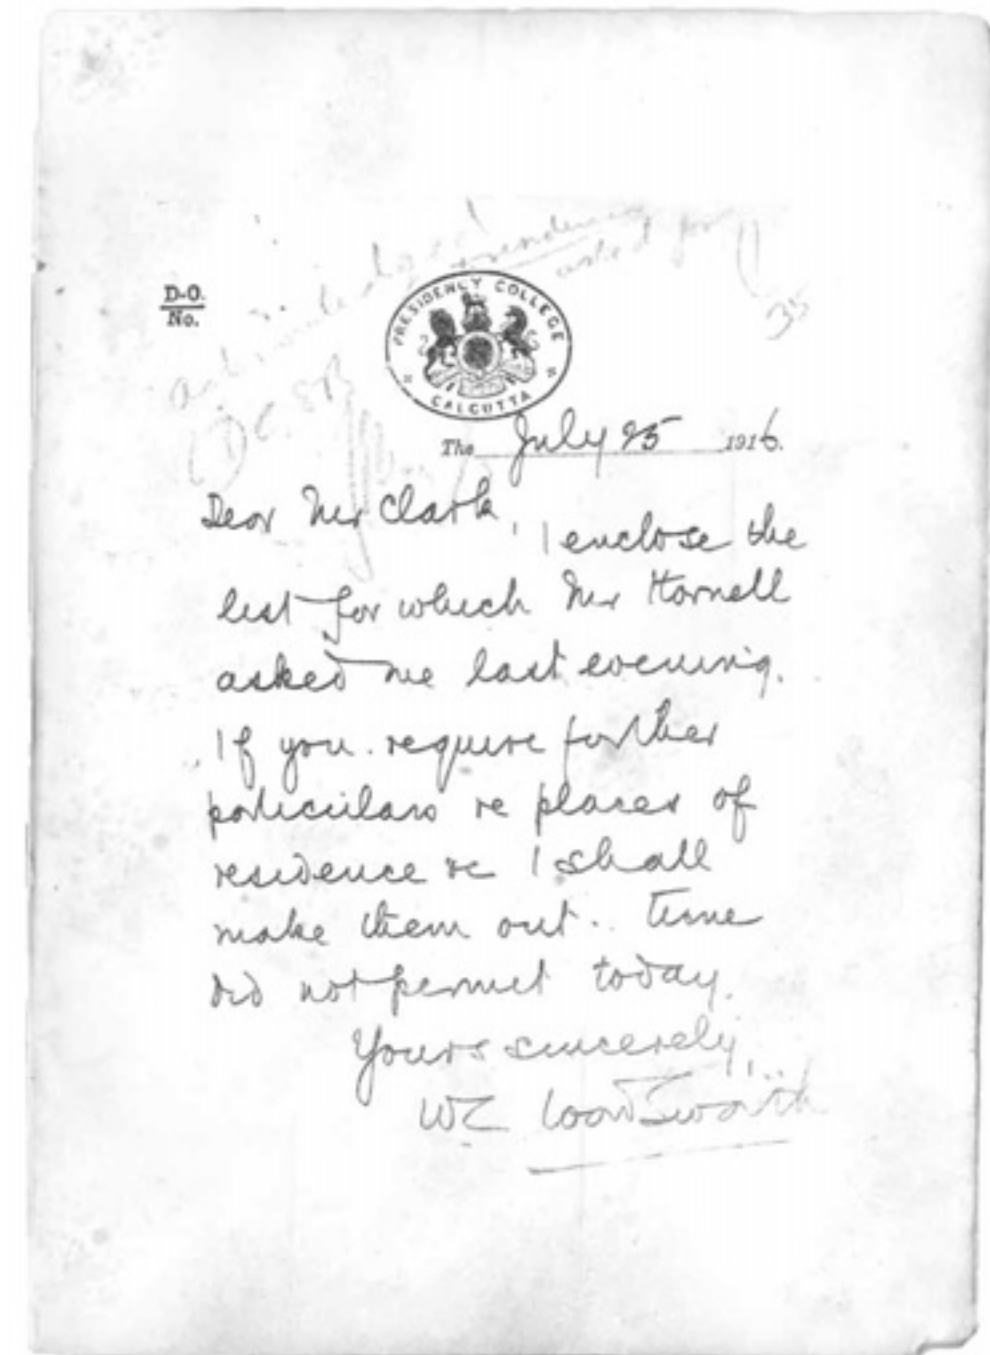 asked for
35
D-O.
No.
PRESIDENCY COLLEGE
CALCUTTA
The July 25 1916.
Dear Mr Clark,
I enclose the
list for which Mr Hornell
asked me last evening.
If you require further
particulars re places of
residence &c I shall
make them out. Time
did not permit today.
Yours sincerely,
WC Wordsworth